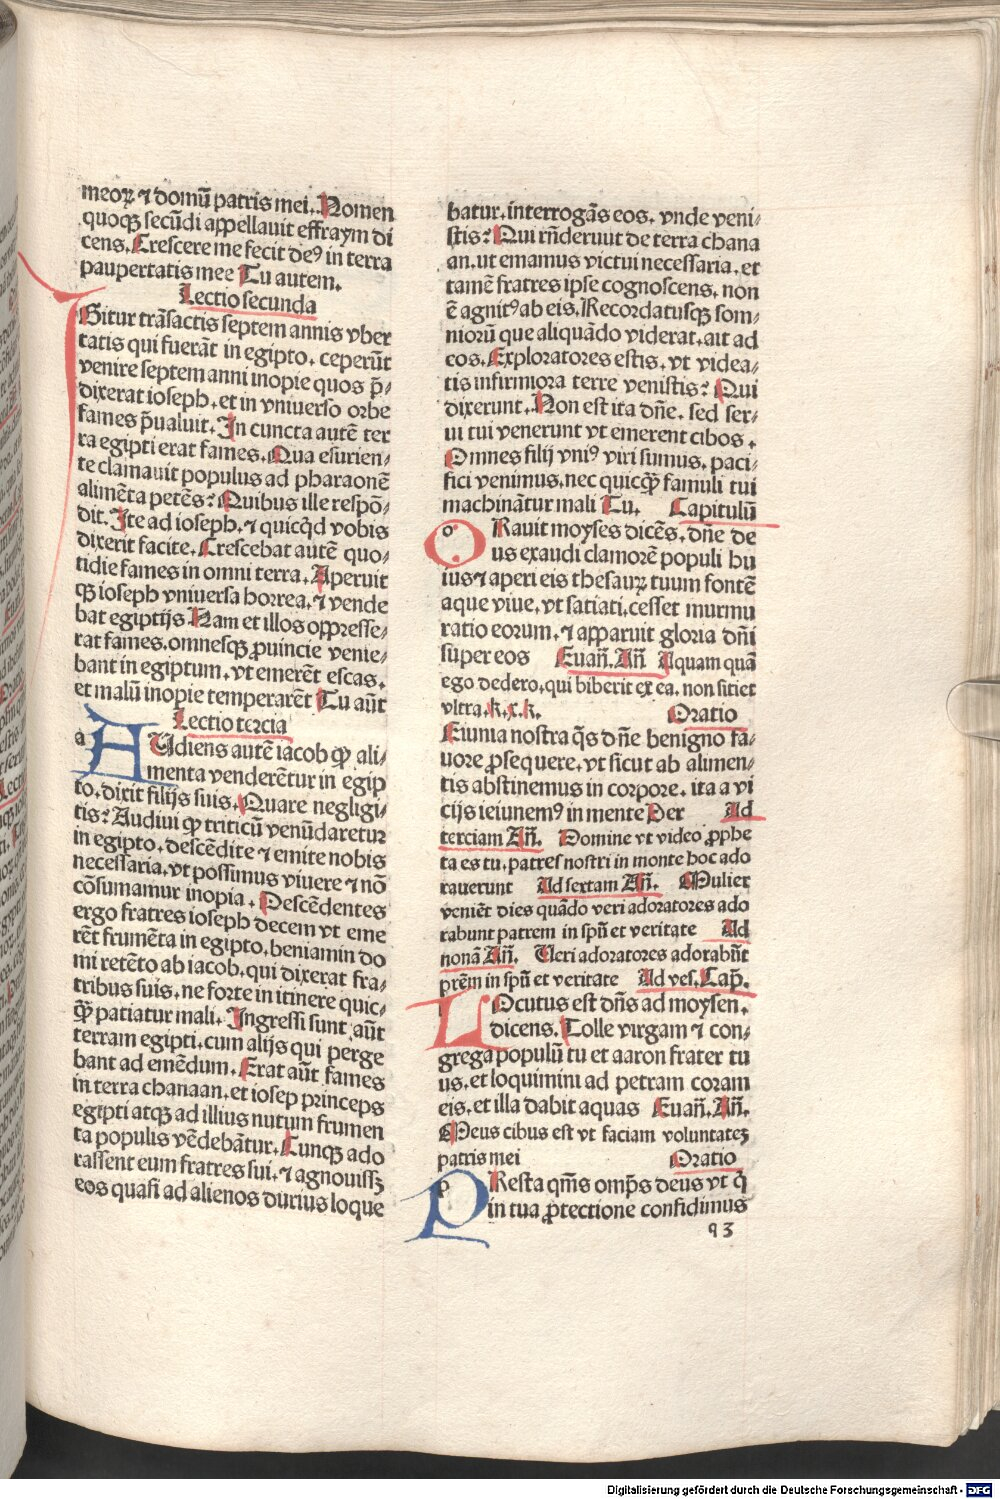 meoꝝ ⁊ domū patris mei. Nomen
quoqꝫ secūdi appellauit effraym di
cens. Crescere me fecit deꝰ in terra
paupertatis mee Tu autem.
Lectio secunda
IGitur trāsactis septem annis vber
tatis qui fuerāt in egipto. ceperūt
venire septem anni inopie quos p̄-
dixerat ioseph. et in vniuerso orbe
fames p̄ualuit. In cuncta autē ter
ra egipti erat fames. Qua esurien-
te clamauit populus ad pharaonē
alimēta petēs? Quibus ille respō-
dit. Ite ad ioseph. ⁊ quicq̇d vobis
dixerit facite. Crescebat autē quo-
tidie fames in omni terra. Aperuit
qꝫ ioseph vniuersa horrea. ⁊ vende
bat egiptijs Nam et illos oppresse-
rat fames. omnesqꝫ ꝓuincie venie-
bant in egiptum. vt emerēt escas.
et malū inopie temperarēt Tu aūt
Lectio tercia
AUdiens autē iacob ꝙ ali-
menta venderētur in egip
to. dixit filijs suis. Quare negligi-
tis? Audiui ꝙ triticū venūdaretur
in egipto. descēdite ⁊ emite nobis
necessaria. vt possimus viuere ⁊ nō
cōsumamur inopia. Descēdentes
ergo fratres ioseph decem vt eme
rēt frumēta in egipto. beniamin do
mi retēto ab iacob. qui dixerat fra-
tribus suis. ne forte in itinere quic-
ꝙ̄ patiatur mali. Ingressi sunt aūt
terram egipti. cum alijs qui perge
bant ad emēdum. Erat aūt fames
in terra chanaan. et iosep princeps
egipti atqꝫ ad illius nutum frumen
ta populis vēdebātur. Cunqꝫ ado
rassent eum fratres sui. ⁊ agnouissꝫ
eos quasi ad alienos durius loque
batur. interrogās eos. vnde veni-
stis? Qui rn̄derunt de terra chana
an. ut emamus victui necessaria. et
tamē fratres ipse cognoscens. non
ē agnitꝰ ab eis. Recordatusqꝫ som-
niorū que aliquādo viderat. ait ad
eos. Exploratores estis. vt videa-
tis infirmiora terre venistis? Qui
dixerunt. Non est ita dn̄e. sed ser-
ui tui venerunt vt emerent cibos.
Omnes filij vniꝰ viri sumus. paci-
fici venimus. nec quicꝙ̄ famuli tui
machinātur mali Tu. Capitulū
ORauit moyses dicēs. dn̄e de
us exaudi clamorē populi hu
ius ⁊ aperi eis thesauꝝ tuum fontē
aque viue. vt satiati. cesset murmu
ratio eorum. ⁊ apparuit gloria dn̄i
super eos Euan̄. An̄ Aquam quā
ego dedero. qui biberit ex ea. non sitiet
vltra. k. x. k. Oratio
Eiunia nostra q̄s dn̄e benigno fa-
uore ꝓsequere. vt sicut ab alimen-
tis abstinemus in corpore. ita a vi
cijs ieiunemꝰ in mente Per Ad
terciam An̄. Domine vt video ꝓphe
ta es tu. patres nostri in monte hoc ado
rauerunt Ad sextam An̄. Mulier
veniēt dies quādo veri adoratores ado
rabunt patrem in spū et veritate Ad
nonā An̄. Ueri adoratores adorabūt
prēm in spū et veritate Ad ves. Cap̄.
LOcutus est dn̄s ad moysen.
dicens. Tolle virgam ⁊ con-
grega populū tu et aaron frater tu
us. et loquimini ad petram coram
eis. et illa dabit aquas Euan̄. An̄.
Meus cibus est vt faciam voluntateꝫ
patris mei Oratio
PResta qm̄s omp̄s deus vt q̇
in tua ꝓtectione confidimus
93
Digitalisierung gefördert durch die Deutsche Forschungsgemeinschaft - DFG